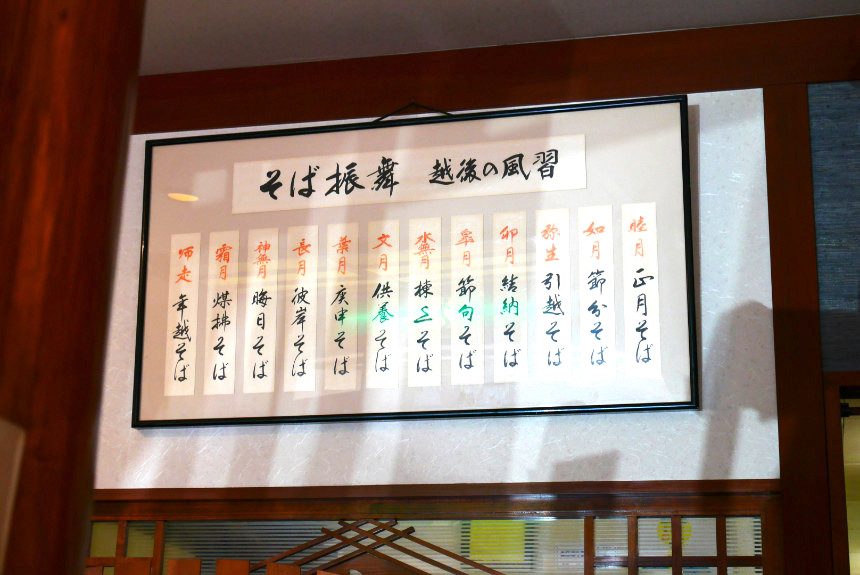 そば振舞 越後の風習
睦月 正月そば
如月 節分そば
弥生 引越そば
卯月 結納そば
皐月 節句そば
水無月 棟上そば
文月 供養そば
葉月 庚申そば
長月 彼岸そば
神無月 晦日そば
霜月 煤拂そば
师走 年越そば